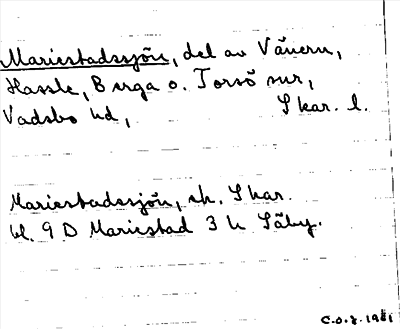 Mariestadssjön, del av Vänern,
Hassle, Berga o. Torsö snr,
Vadsbo hd, Skar. l.
Mariestadssjön, rk. Skar.
bl. 9 D Mariestad 3 h Säby.
C.o.z. 1981